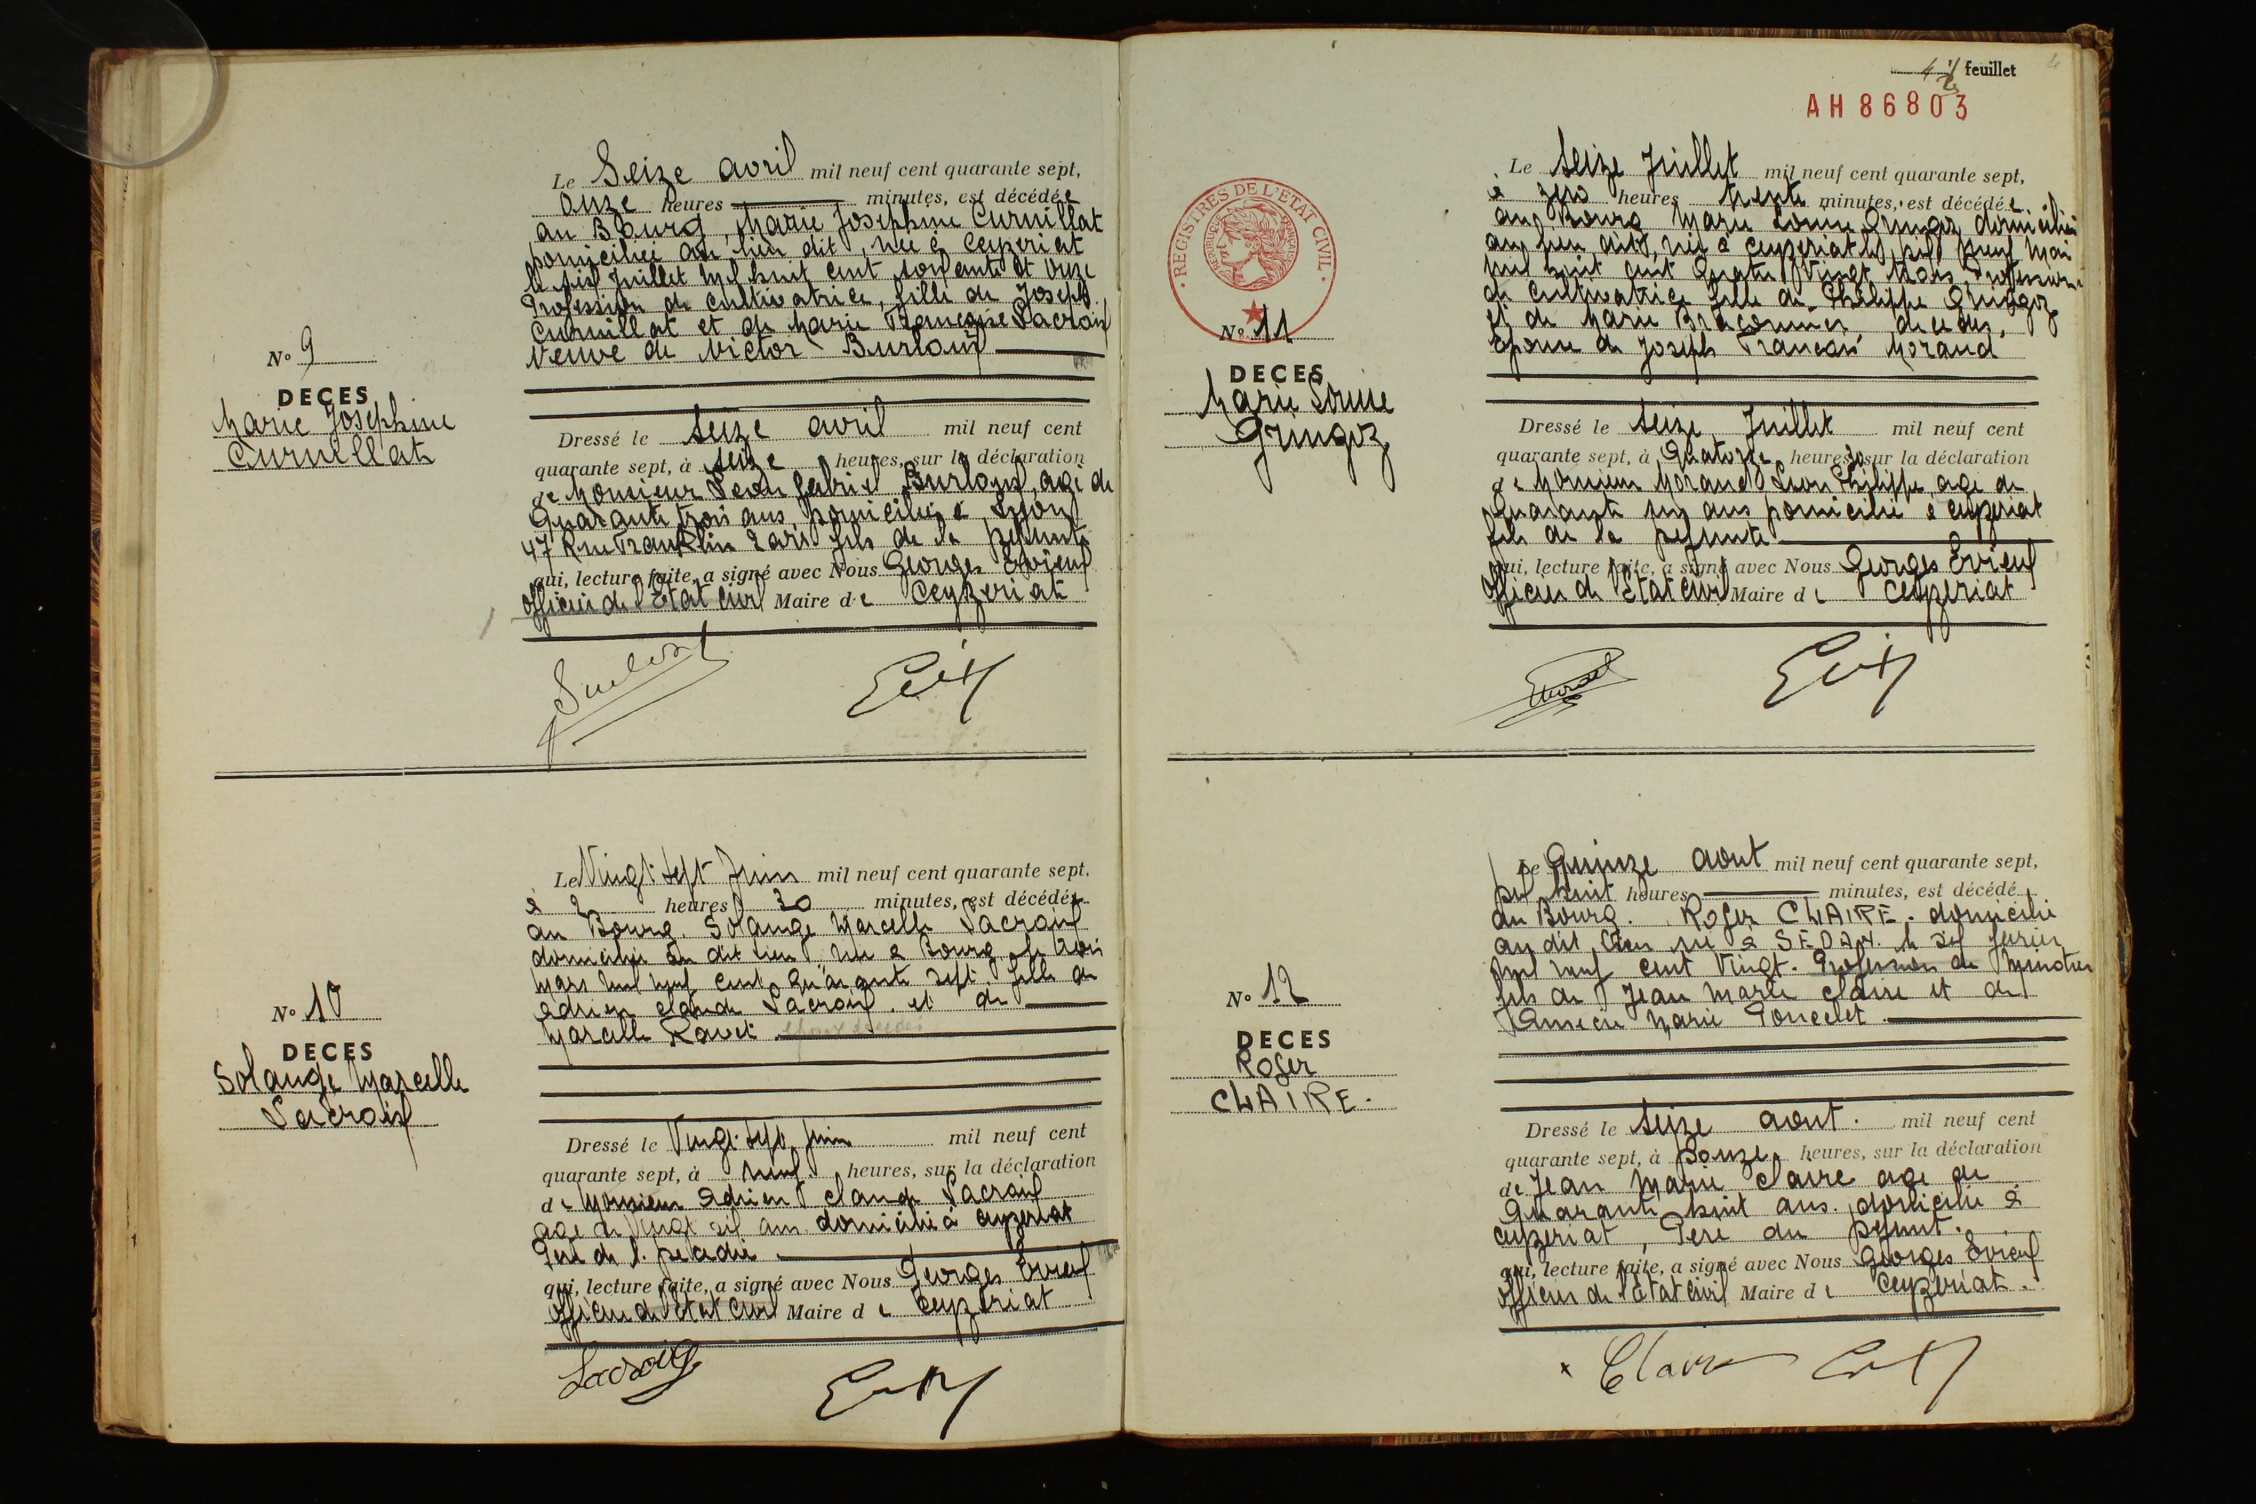 Le Seize avril mil neuf cent quarante sept,
onze heures minutes, est décédée
au Bourg, Marie Josephine Curnillat
domiciliée au lieu dit, née à Ceyzeriat
le six Juillet mil huit cent soixante et onze
Profession de cultivatrice, fille de Joseph
Curnillat et de Marie Françoise Lacroix
Veuve de Victor Burloux
No 9
DECES
Marie Josephine
Curnillat
Dressé le seize avril mil neuf cent
quarante sept, à seize heures, sur la déclaration
de Monsieur Gabriel Burloux, agé de
Quarante trois ans, domicilié à Lyon
47 Rue Franklin fils de la defunte
qui, lecture faite, a signé avec Nous Georges Evieux
Officier de l'Etat Civil Maire de Ceyzeriat
Le Vingt sept Juin mil neuf cent quarante sept,
à 2 heures 30 minutes, est décédée
au Bourg. Solange Marcelle Lacroix
domiciliée au dit lieu née à Bourg le trois
mars mil neuf cent quarante sept. fille de
Adrien Claude Lacroix et de
Marcelle Ravet
No 10
DECES
Solange Marcelle
Lacroix
Dressé le Vingt sept Juin mil neuf cent
quarante sept, à neuf heures, sur la déclaration
de Monsieur Adrien Claude Lacroix
age de Vingt six ans domicilié à Ceyzeriat
Père de l. décédée
qui, lecture faite, a signé avec Nous Georges Evieux
Officier de l'état civil Maire de Ceyzeriat
Lacroix
feuillet
AH 86803
REGISTRES DE L'ETAT CIVIL
Le seize Juillet mil neuf cent quarante sept,
à zero heures trente minutes, est décédée
au Bourg Marie Louise Gringoz domiciliée
au lieu dit, née à Ceyzeriat le dix neuf Mai
mil huit cent Quatre Vingt trois, Profession
de cultivatrice fille de Philippe Gringoz
et de Marie Braconnier, decedés,
Epouse de Joseph François Morand
No 11
DECES
Marie Louise
Gringoz
Dressé le seize Juillet mil neuf cent
quarante sept, à Quatorze heures 30 sur la déclaration
de Monsieur Morand Léon Philippe, age de
Quarante six ans domicilié à Ceyzeriat
fils de la defunte
qui, lecture faite, a signé avec Nous Georges Evieux
Officier de l'Etat Civil Maire de Ceyzeriat
Le Quinze aout mil neuf cent quarante sept,
dix huit heures minutes, est décédé
au Bourg. Roger CLAIRE. domicilié
au dit lieu né à SEDAN. le six fevrier
mil neuf cent Vingt. Profession de Minotier
fils de Jean Marie Claire et de
Marie Poncelet
No 12
DECES
Roger
CLAIRE.
Dressé le seize aout. mil neuf cent
quarante sept, à Douze heures, sur la déclaration
de Jean Marie Claire age de
Quarante huit ans. domicilié à
Ceyzeriat, Père du defunt.
qui, lecture faite, a signé avec Nous Georges Evieux
Officier de l'état civil Maire de Ceyzeriat.
Claire